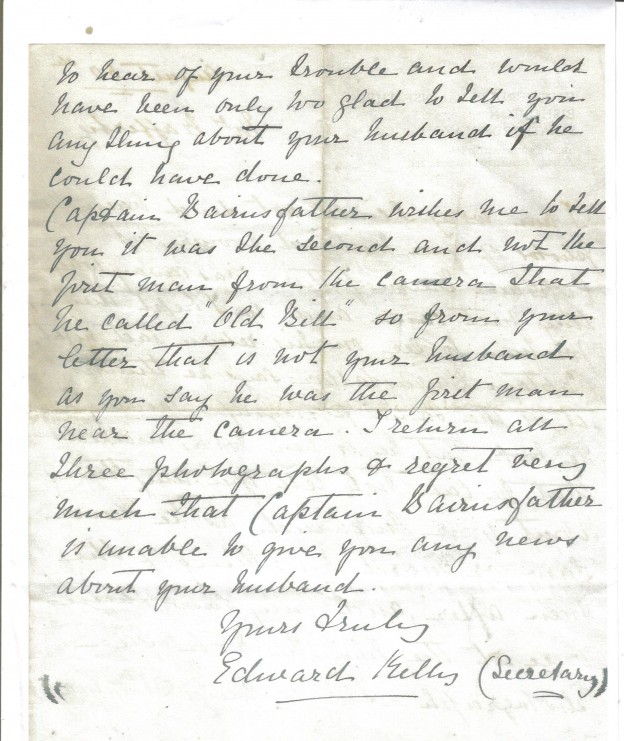 to hear of your trouble and would
have been only too glad to tell you
any thing about your husband if he
could have done.
Captain Bairnsfather wishes me to tell
you it was the second and not the
first man from the camera that
he called "Old Bill" so from your
letter that is not your husband
as you say he was the first man
near the camera. I return all
three photographs & regret very
much that Captain Bairnsfather
is unable to give you any news
about your husband.
Yours Truly
Edward Kelly (Secretary)